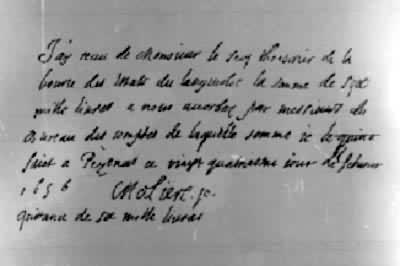 J'ay receu de Monsieur le secq thresorier de la
bource des Estats du languedoc la somme de six
mille liures a nous accordez par messieurs du
bureau des comptes de laquelle somme ie le quitte
faict a Pezenas ce vingt quatriesme iour de febvrier
1656 Moliere
quittance de six mille liures